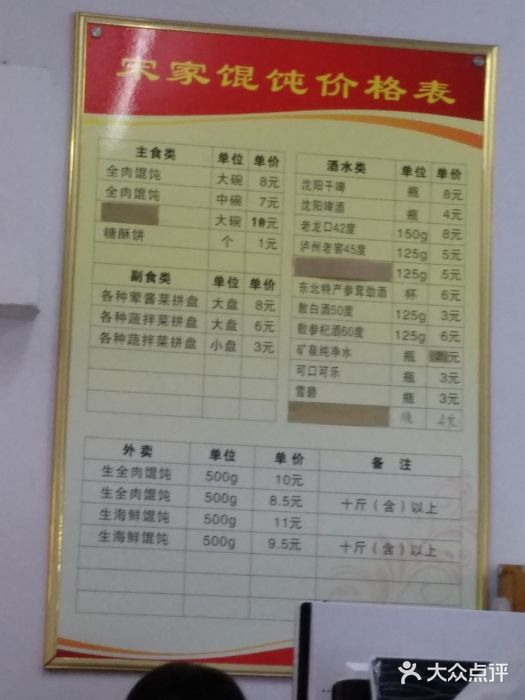 宋家馄饨价格表
主食类 单位 单价
全肉馄饨 大碗 8元
全肉馄饨 中碗 7元
大碗 10元
糖酥饼 个 1元
副食类 单位 单价
各种荤酱菜拼盘 大盘 8元
各种蔬拌菜拼盘 大盘 6元
各种蔬拌菜拼盘 小盘 3元
酒水类 单位 单价
沈阳干啤 瓶 8元
沈阳啤酒 瓶 4元
老龙口42度 150g 8元
泸州老窖45度 125g 5元
125g 5元
东北特产参茸劲酒 杯 6元
散白酒50度 125g 3元
散参杞酒60度 125g 6元
矿泉纯净水 瓶 元
可口可乐 瓶 3元
雪碧 瓶 3元
外卖 单位 单价 备注
生全肉馄饨 500g 10元
生全肉馄饨 500g 8.5元 十斤（含）以上
生海鲜馄饨 500g 11元
生海鲜馄饨 500g 9.5元 十斤（含）以上
大众点评